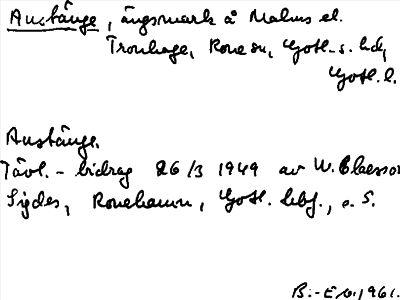 Austänge, ängsmark å Malms el.
Tronhage, Rone sn, Gotl. s. hd,
Gotl. l.
Austänge.
Tävl.-bidrag 26/3 1949 av W. Claesson
Sigdes, Ronehamn, Gotl. lbf., o. S.
B.-E v. 1961.